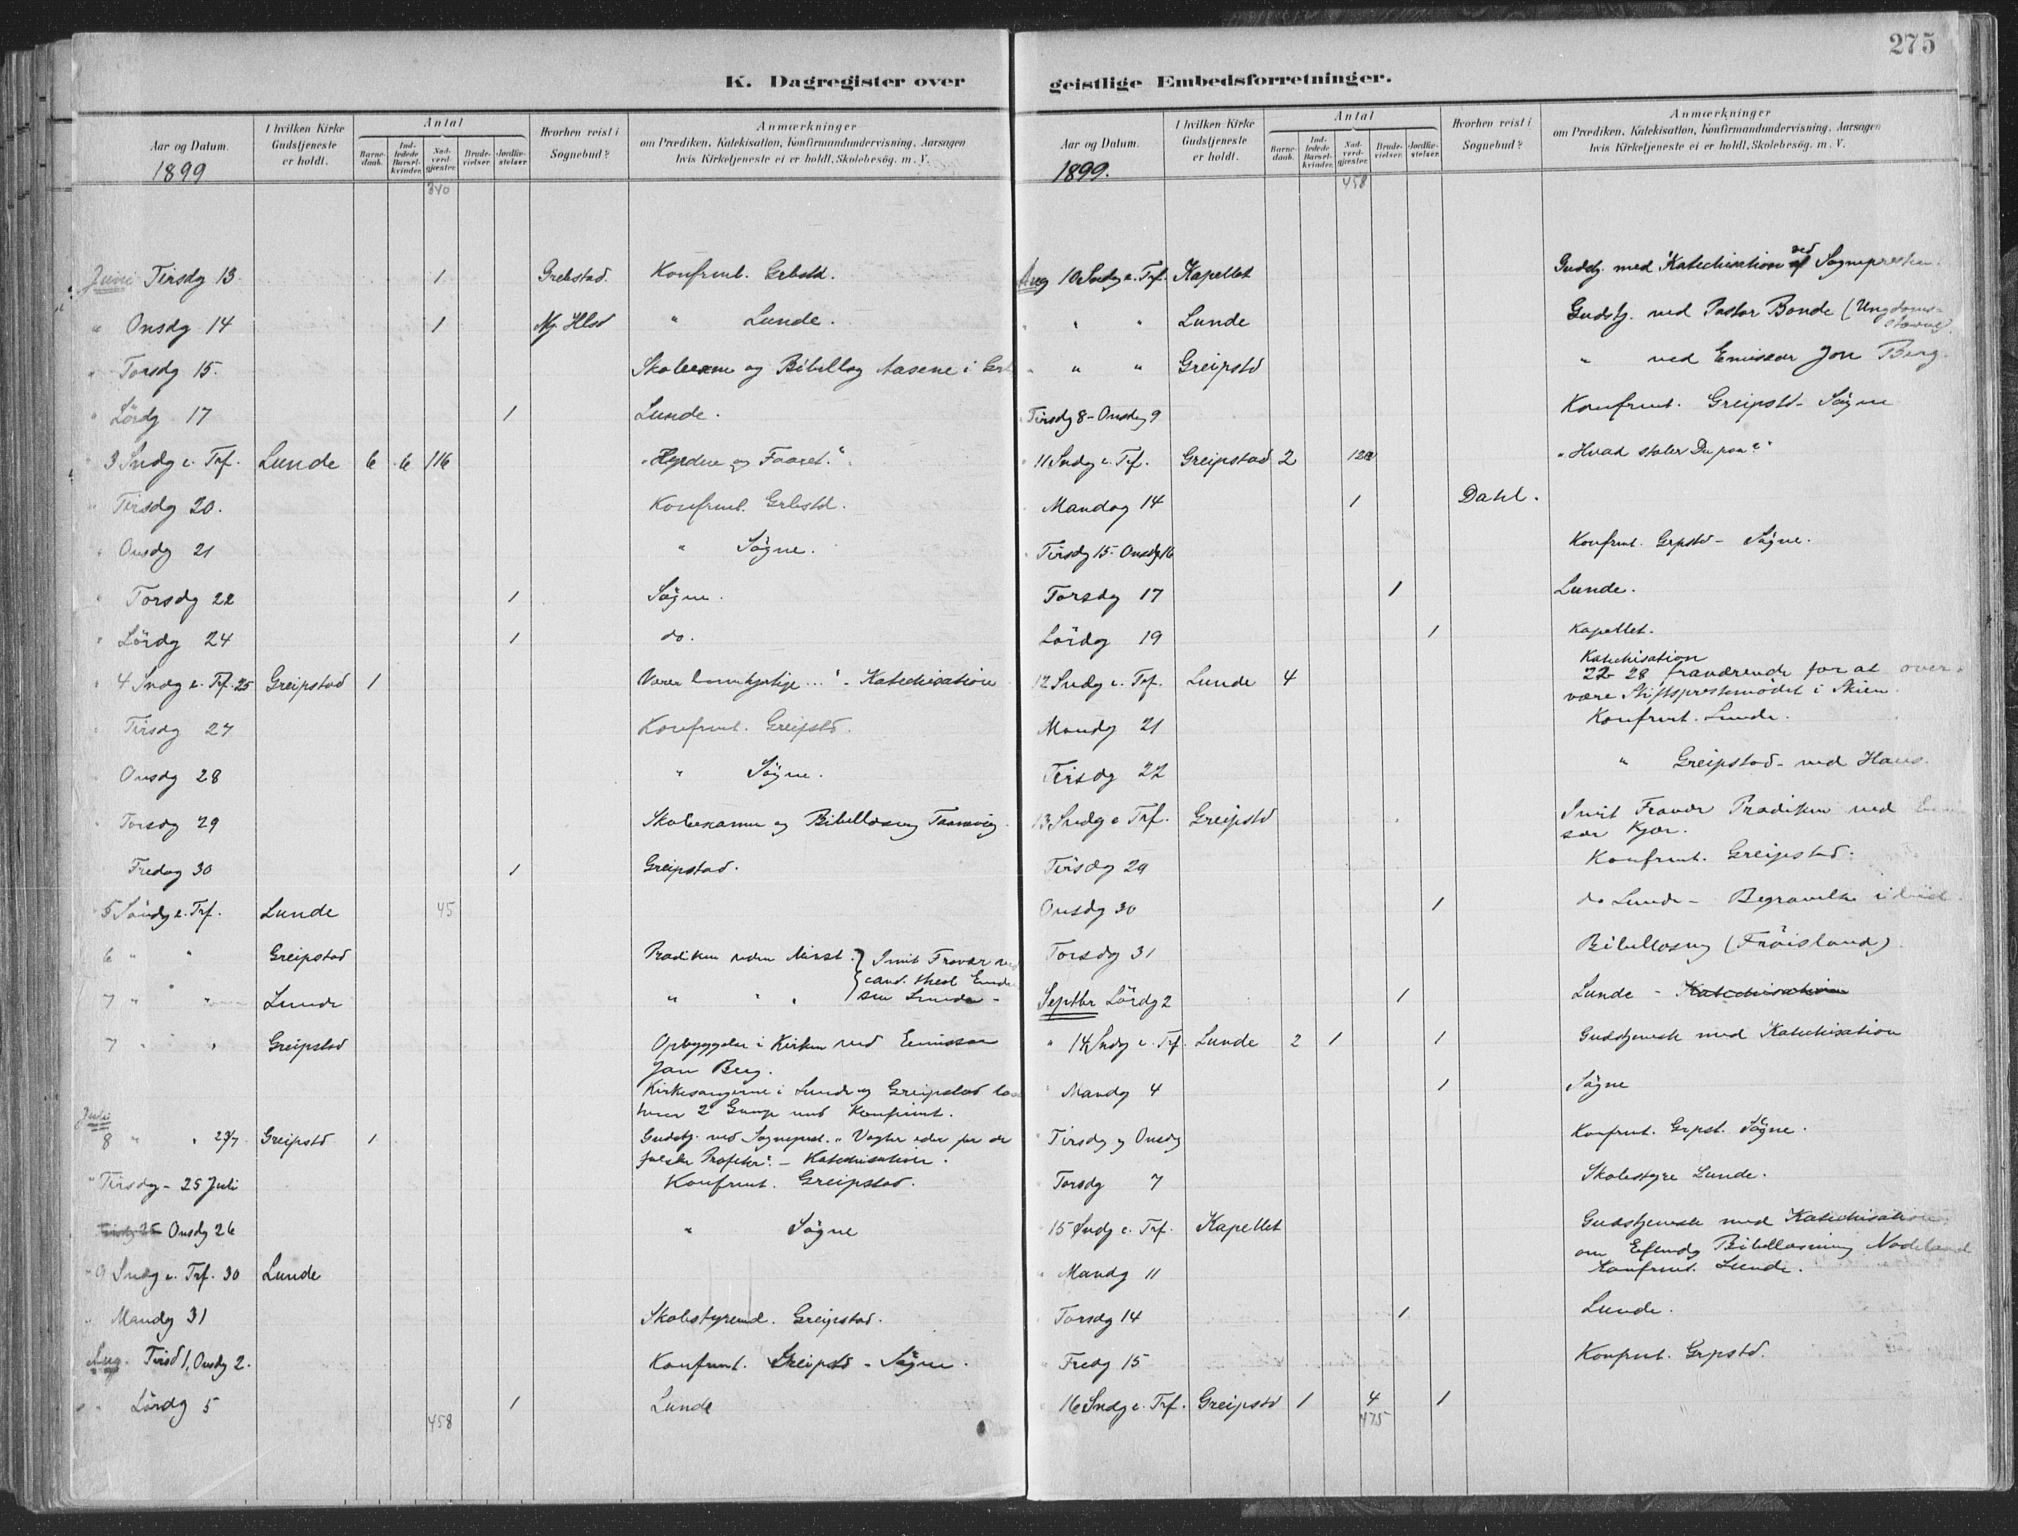 275
K. Dagregister over
Aar og Datum.
1899
I hvilken Kirke Gudstjeneste er holdt.
Antal
Barnedaab.
Indledede Barselkvinder.
Nadverdgjester.
Brudevielser.
Jordfæstelser.
Hvorhen reist i Sognebud?
Anmærkninger
om Prædiken, Katekisation, Konfirmandundervisning, Aarsagen
hvis Kirketjeneste ei er holdt, Skolebesøg. m. V.
340
Juni Tirsdg 13 1 Grebstad. Konfrmt. Grbstd.
" Onsdg 14 1 " Lunde.
" Torsdg 15. og Aasene i
" Lördg 17 1 Lunde.
" 3 Sndg e. Trf. Lunde 6 6 116 "Hyrden og Faaret."
" Tirsdg 20. Konfrmt. Grbstd.
" Onsdg 21 " Sögne.
" Torsdg 22 1 Sögne.
" Lördg 24 1 do.
" 4 Sndg e. Trf. 25 Greipstad 1 Værer barmhjertige ..." - Katechisation
" Tirsdg 27 Konfrmt. Greipstd.
" Onsdg 28 " Sögne.
" Torsdg 29 Skoleexamen og Bibellæsng
Fredag 30 1 Greipstad.
5 Söndg e. Trf. Lunde 45
6 " " Greipstad Prædiken uden
7 " " Lunde " " " cand. theol.
7 " " Greipstad Opbyggelse i Kirken ved Emissær
Berg.
Kirkesangerne i Lunde og Greipstad
2 Gange med Konfrmt.
Juli
8 " " 23/7 Greipstd 1 Gudstj. ved Sogneprst. "Vogter eder for de
falske Profeter". - Katechisation.
" Tirsdg - 25 Juli Konfrmt. Greipstad.
Onsdg 26 " Sögne
" 9 Sndg e. Trf. 30 Lunde
" Mandg 31 Greipstad.
Aug. Tirsd 1, Onsdg 2. Konfrmt. Greipstd - Sögne.
" Lördg 5 1 Lunde
458
geistlige Embedsforretninger.
Aar og Datum.
1899.
I hvilken Kirke Gudstjeneste er holdt.
Antal
Barnedaab.
Indledede Barselkvinder.
Nadverdgjester.
Brudevielser.
Jordfæstelser.
Hvorhen reist i Sognebud?
Anmærkninger
om Prædiken, Katekisation, Konfirmandundervisning, Aarsagen
hvis Kirketjeneste ei er holdt, Skolebesøg. m. V.
458
Aug 10 Sndg e. Trf. Kapellet Gudstj. med Katechisation ved Sognepresten.
" " " Lunde Gudstj. ved Pastor Bonde
" " " Greipstd " ved Emissær Berg.
" Tirsdg 8 - Onsdg 9 Konfrmt. Greipstd - Sögne
" 11 Sndg e. Trf. Greipstad 2 "Hvad stoler Du paa?"
" Mandag 14 1 Dahl.
" Tirsdg 15 - Onsdg 16 Konfrmt. Grpstd - Sögne.
Torsdg 17 1 Lunde.
Lördg 19 1 Kapellet.
12 Sndg e. Trf. Lunde 4 Katechisation
28 fraværende for at over-
være Stiftsprestemödet i Skien.
Mandg 21 Konfrmt. Lunde.
Tirsdg 22 " Greipstad - ved
13 Sndg e Trf. Greipstd I mit Fravær Prædiken ved
sær Kjær.
Tirsdg 29 Konfrmt. Greipstad.
Onsdg 30 1 do Lunde - Begravelse
Torsdg 31 Bibellæsng (Fröisland)
Septbr Lördg 2 1 Lunde - Katechisation
" 14 Sndg e. Trf. Lunde 2 1 1 Gudstjeneste med Katechisation
" Mandg 4 1 Sögne
" Tirsdg og Onsdg Konfrmt. Grpst. Sögne.
" Torsdg 7 Skolestyre Lunde.
15 Sndg e. Trf. Kapellet Gudstjeneste med Katechisation.
om Bibellæsning Nodeland
" Mandg 11 Konfrmt. Lunde.
" Torsdg 14 1 Lunde.
" Fredg 15 Konfrmt. Grpstd.
16 Sndg e. Trf. Greipstd 1 4 1
475